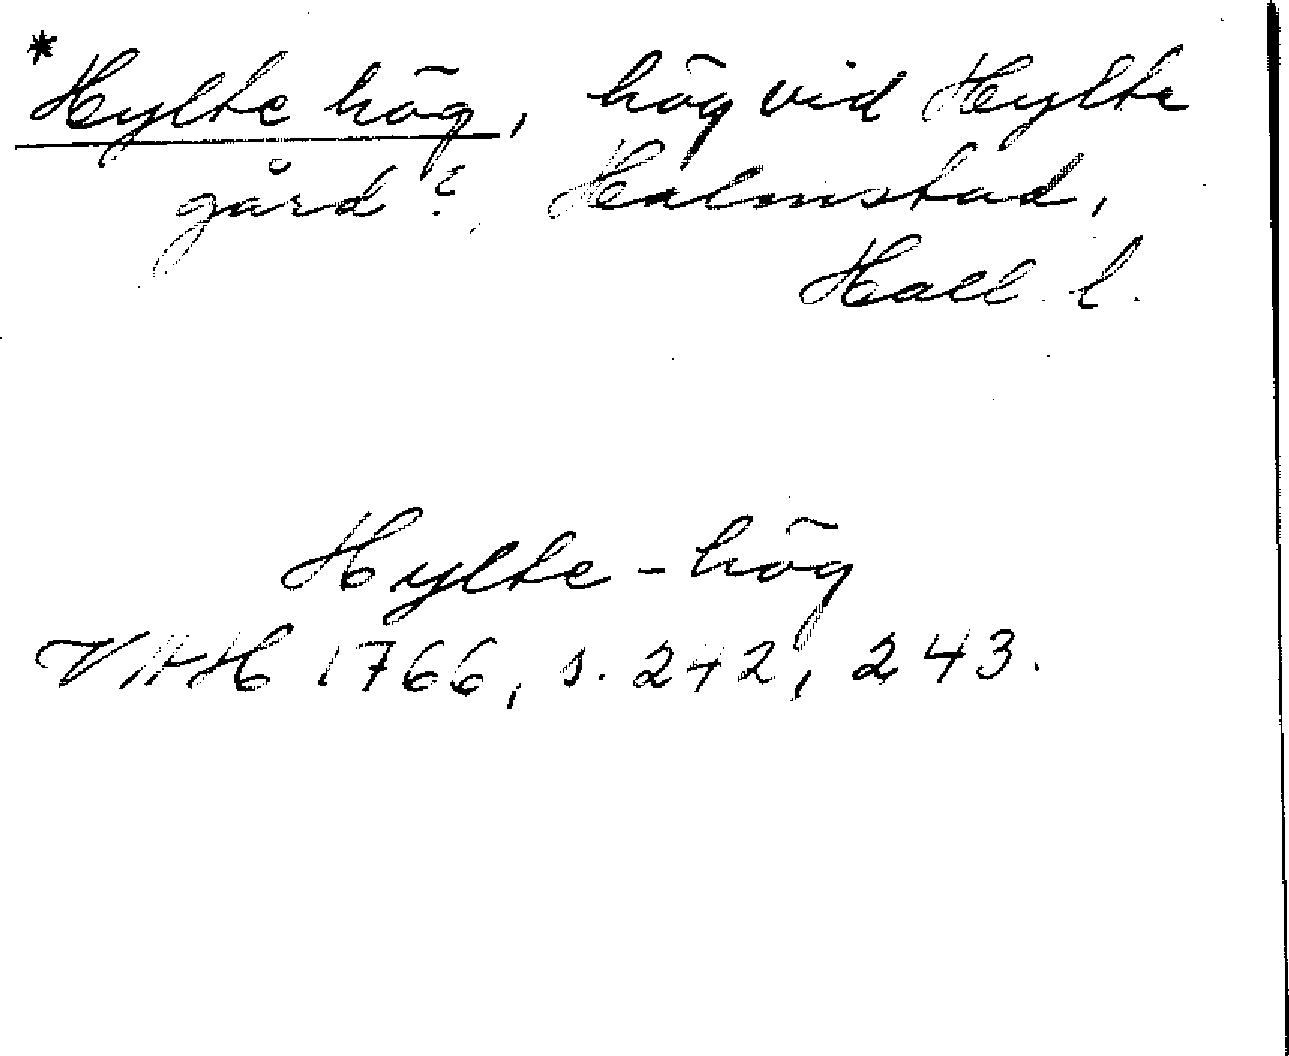 *Hylte hög, hög vid Hylte
gård?, Halmstad,
Hall. l.
Hylte-hög
VAH 1766, s. 242, 243.